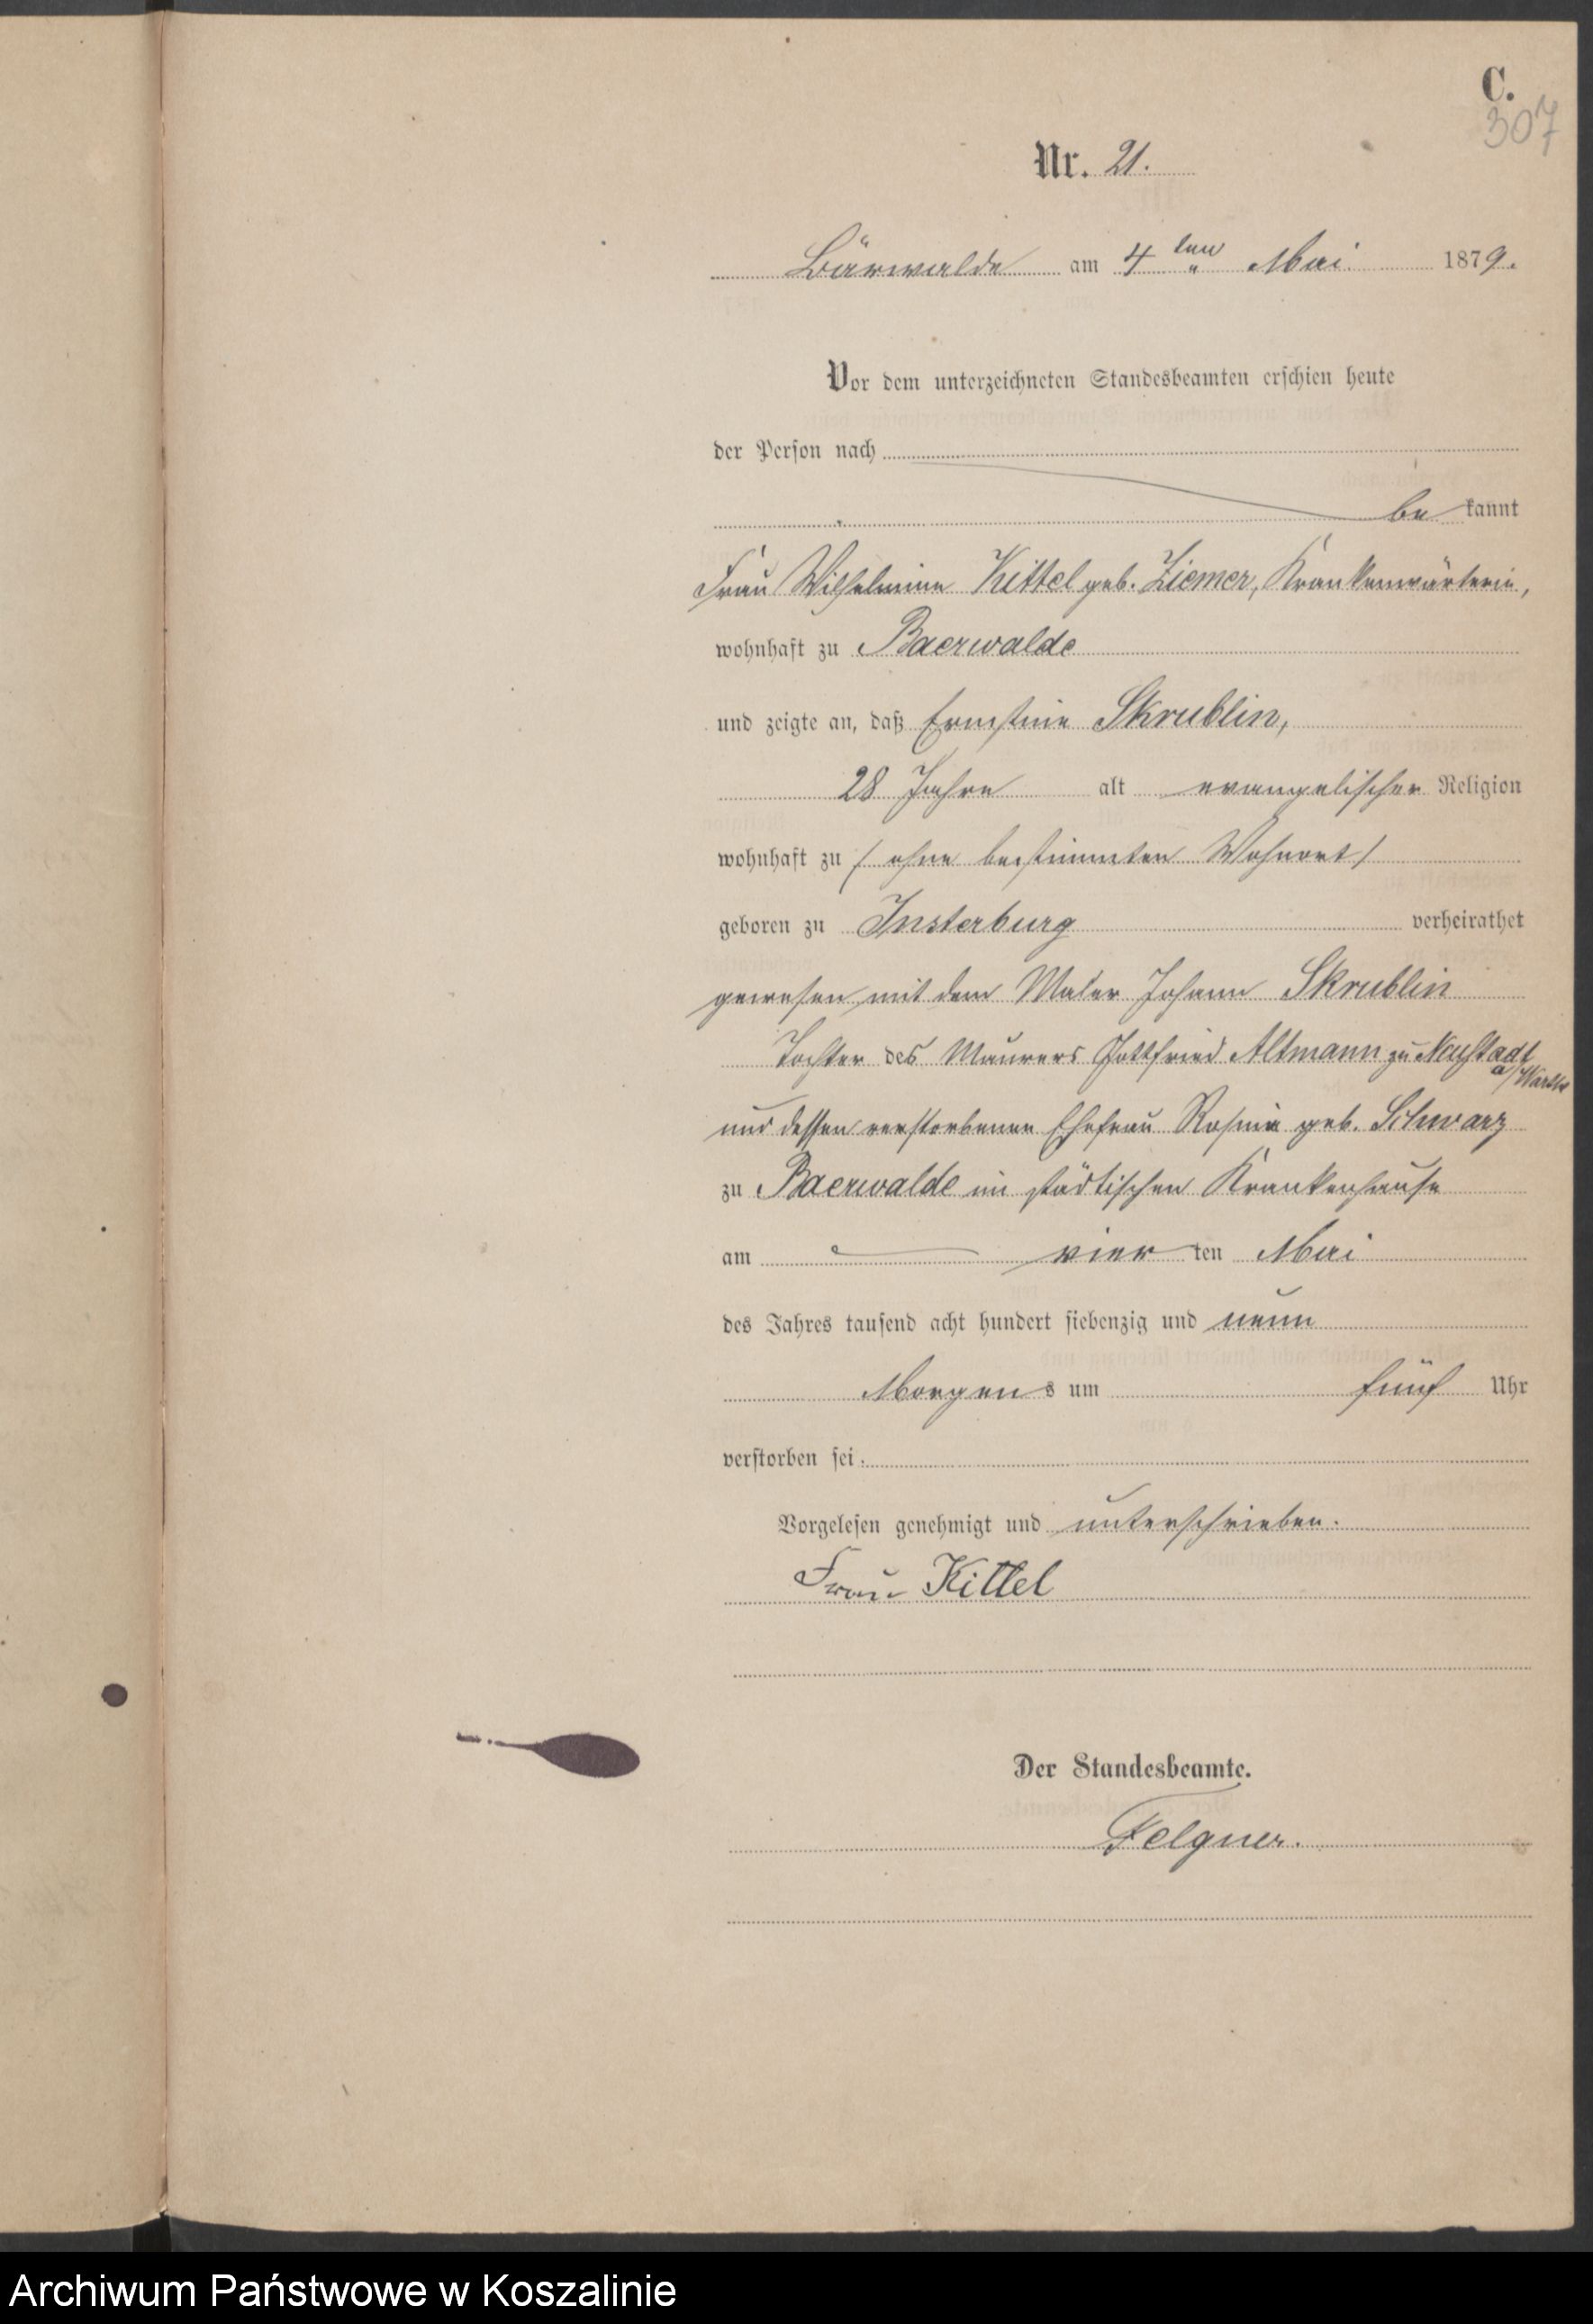 C.
307
Nr. 21.
Bärwalde am 4ten Mai 1879.
Vor dem unterzeichneten Standesbeamten erschien heute
der Person nach
be kannt
Frau Wilhelmine Kittel geb. Ziemer, Krankenwärterin,
wohnhaft zu Baerwalde
und zeigte an, daß Ernstine Skrublin,
28 Jahre alt evangelischer Religion
wohnhaft zu / ohne bestimmten Wohnort /
geboren zu Insterburg verheirathet
gewesen mit dem Maler Johann Skrublin
Tochter des Maurers Gottfried Altmann zu Neustadt
a/Warthe
und dessen verstorbenen Ehefrau Rosina geb. Schwarz
zu Baerwalde im städtischen Krankenhause
am vier ten Mai
des Jahres tausend acht hundert siebenzig und neun
Morgens um fünf Uhr
verstorben sei.
Vorgelesen genehmigt und unterschrieben.
Frau Kittel
Der Standesbeamte.
Felgner.
Archiwum Państwowe w Koszalinie